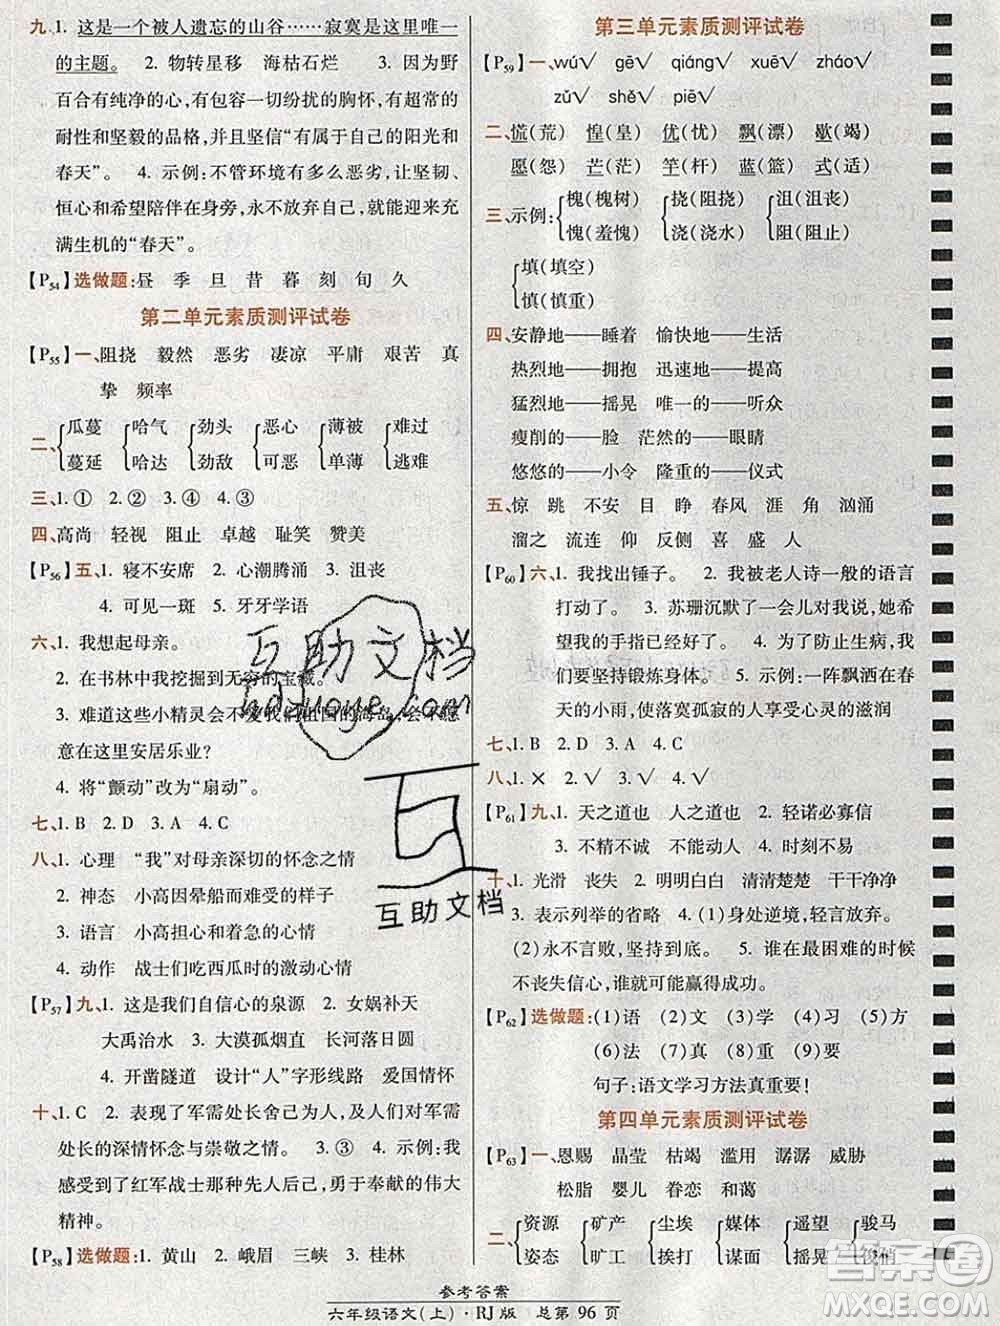 九、1. 这是一个被人遗忘的山谷……寂寞是这里唯一
的主题。 2. 物转星移 海枯石烂 3. 因为野
百合有纯净的心,有包容一切纷扰的胸怀,有超常的
耐性和坚毅的品格,并且坚信“有属于自己的阳光和
春天”。 4. 示例:不管环境有多么恶劣,让坚韧、
恒心和希望陪伴在身旁,永不放弃自己,就能迎来充
满生机的“春天”。
【P54】选做题:昼 季 旦 昔 暮 刻 旬 久
第二单元素质测评试卷
【P55】一、阻挠 毅然 恶劣 凄凉 平庸 艰苦 真
挚 频率
二、{瓜蔓 {哈气 {劲头 {恶心 {薄被 {难过
蔓延 哈达 劲敌 恶人 单薄 逃难
三、1. ① 2. ② 3. ④ 4. ③
四、高尚 轻视 阻止 卓越 耻笑 赞美
【P56】五、1. 寝不安席 2. 心潮腾涌 3. 沮丧
4. 可见一斑 5. 牙牙学语
六、1. 我想起母亲。
2. 在书林中我挖掘到无穷的宝藏。
3. 难道这些小精灵会不爱我们祖国的海岛,会不愿
意在这里安居乐业?
4. 将“颤动”改为“扇动”。
七、1. B 2. D 3. A 4. C
八、1. 心理 “我”对母亲深切的怀念之情
2. 神态 小高因晕船而难受的样子
3. 语言 小高担心和着急的心情
4. 动作 战士们吃西瓜时的激动心情
【P57】九、1. 这是我们自信心的泉源 2. 女娲补天
大禹治水 3. 大漠孤烟直 长河落日圆
4. 开凿隧道 设计“人”字形线路 爱国情怀
十、1. C 2. 表现了军需处长舍己为人,以及军需
处长的深情怀念与崇敬之情。 3. ③ 4. 示例:我
感受到了红军战士那种先人后己,勇于奉献的伟大
精神。
【P58】选做题:1. 黄山 2. 峨眉 三峡 3. 桂林
第三单元素质测评试卷
【P59】一、wú√ gē√ qiáng√ xuē√ zháo√
zǔ√ shě√ piē√
二、慌(荒) 惶(皇) 优(忧) 飘(漂) 歇(竭)
愿(怨) 芒(茫) 竿(杆) 蓝(篮) 式(适)
三、示例:{槐(槐树) {挠(阻挠) {沮(沮丧)
愧(羞愧) 浇(浇水) 阻(阻止)
{填(填空)
慎(慎重)
四、安静地——睡着 愉快地——生活
热烈地——拥抱 迅速地——提高
猛烈的——摇晃 唯一的——听众
瘦削的——脸 茫然的——眼睛
悠悠的——小令 隆重的——仪式
五、惊 跳 不安 目 睁 春风 涯 角 汹涌
溜之 流连 仰 反侧 喜 盛 人
【P60】六、1. 我找出锤子。 2. 我被老人诗一般的语言
打动了。 3. 苏珊沉默了一会儿对我说,她希
望我的手指已经好了。 4. 为了防止生病,我
们要坚持锻炼身体。 5. 示例:一阵飘洒在春
天的小雨,使落寞孤寂的人享受心灵的滋润
七、1. B 2. D 3. A 4. C
八、1. × 2. √ 3. √ 4. √
【P61】九、1. 天之道也 人之道也 2. 轻诺必寡信
3. 不精不诚 不能动人 4. 时刻不易
十、1. 光滑 丧失 2. 明明白白 清清楚楚 干干净净
3. 表示列举的省略 4. (1)身处逆境,轻言放弃。
(2)永不言败,坚持到底。 5. 谁在最困难的时候
不丧失信心,谁就可能赢得成功。
【P62】选做题:(1)语 (2)文 (3)学 (4)习 (5)方
(6)法 (7)真 (8)重 (9)要
句子:语文学习方法真重要!
第四单元素质测评试卷
【P63】一、恩赐 晶莹 枯竭 滥用 潺潺 威胁
松脂 婴儿 眷恋 和蔼
二、{资源 {矿产 {尘埃 {媒体 {遥望 {骏马
姿态 旷工 挨打 谋面 摇晃 俊俏
参考答案
六年级语文(上)·RJ版 总第 96 页
互助文档
互
互助文档
答案圈